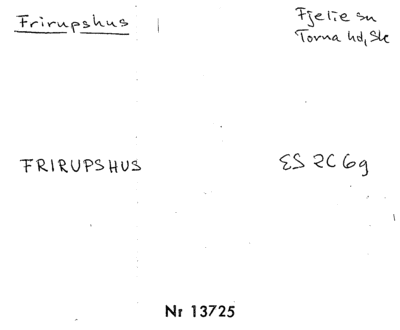 Frirupshus
Fjelie sn
Torna hd, Sk
FRIRUPSHUS
ES 2C 6g
Nr 13725